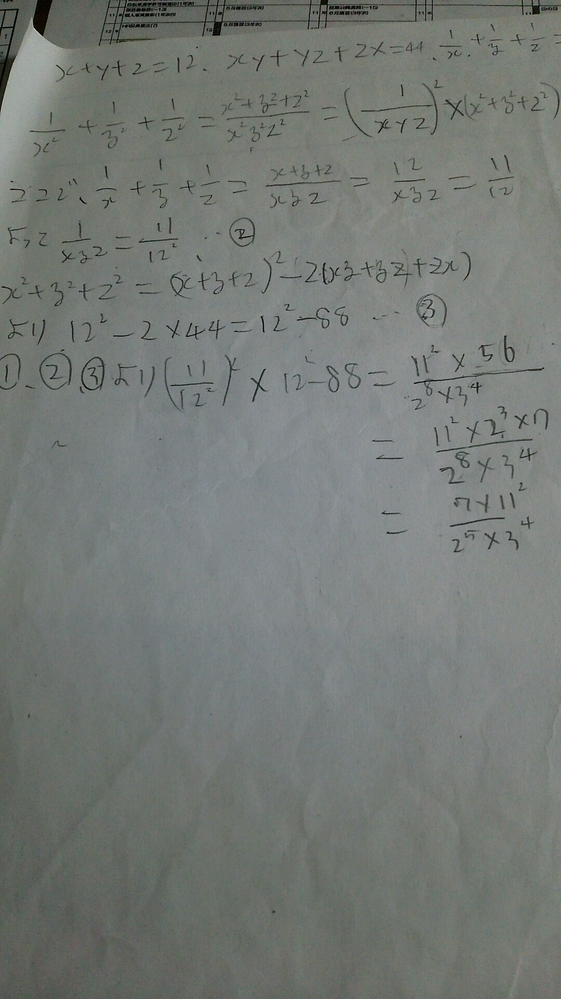 x+y+z=12. xy+yz+zx=44. 1/x + 1/y + 1/z =
1/x² + 1/y² + 1/z² = (x²+y²+z²)/(x²y²z²) = (1/xyz)² × (x²+y²+z²)
ここで、1/x + 1/y + 1/z = (x+y+z)/xyz = 12/xyz = 11/12
よって 1/xyz = 11/12² … ②
x²+y²+z² = (x+y+z)² −2(xy+yz+zx)
より 12²−2×44=12²−88 … ③
①、②、③より (11/12²)² × 12²−88 = (11²×56)/(2⁸×3⁴)
= (11²×2³×7)/(2⁸×3⁴)
= (7×11²)/(2⁵×3⁴)